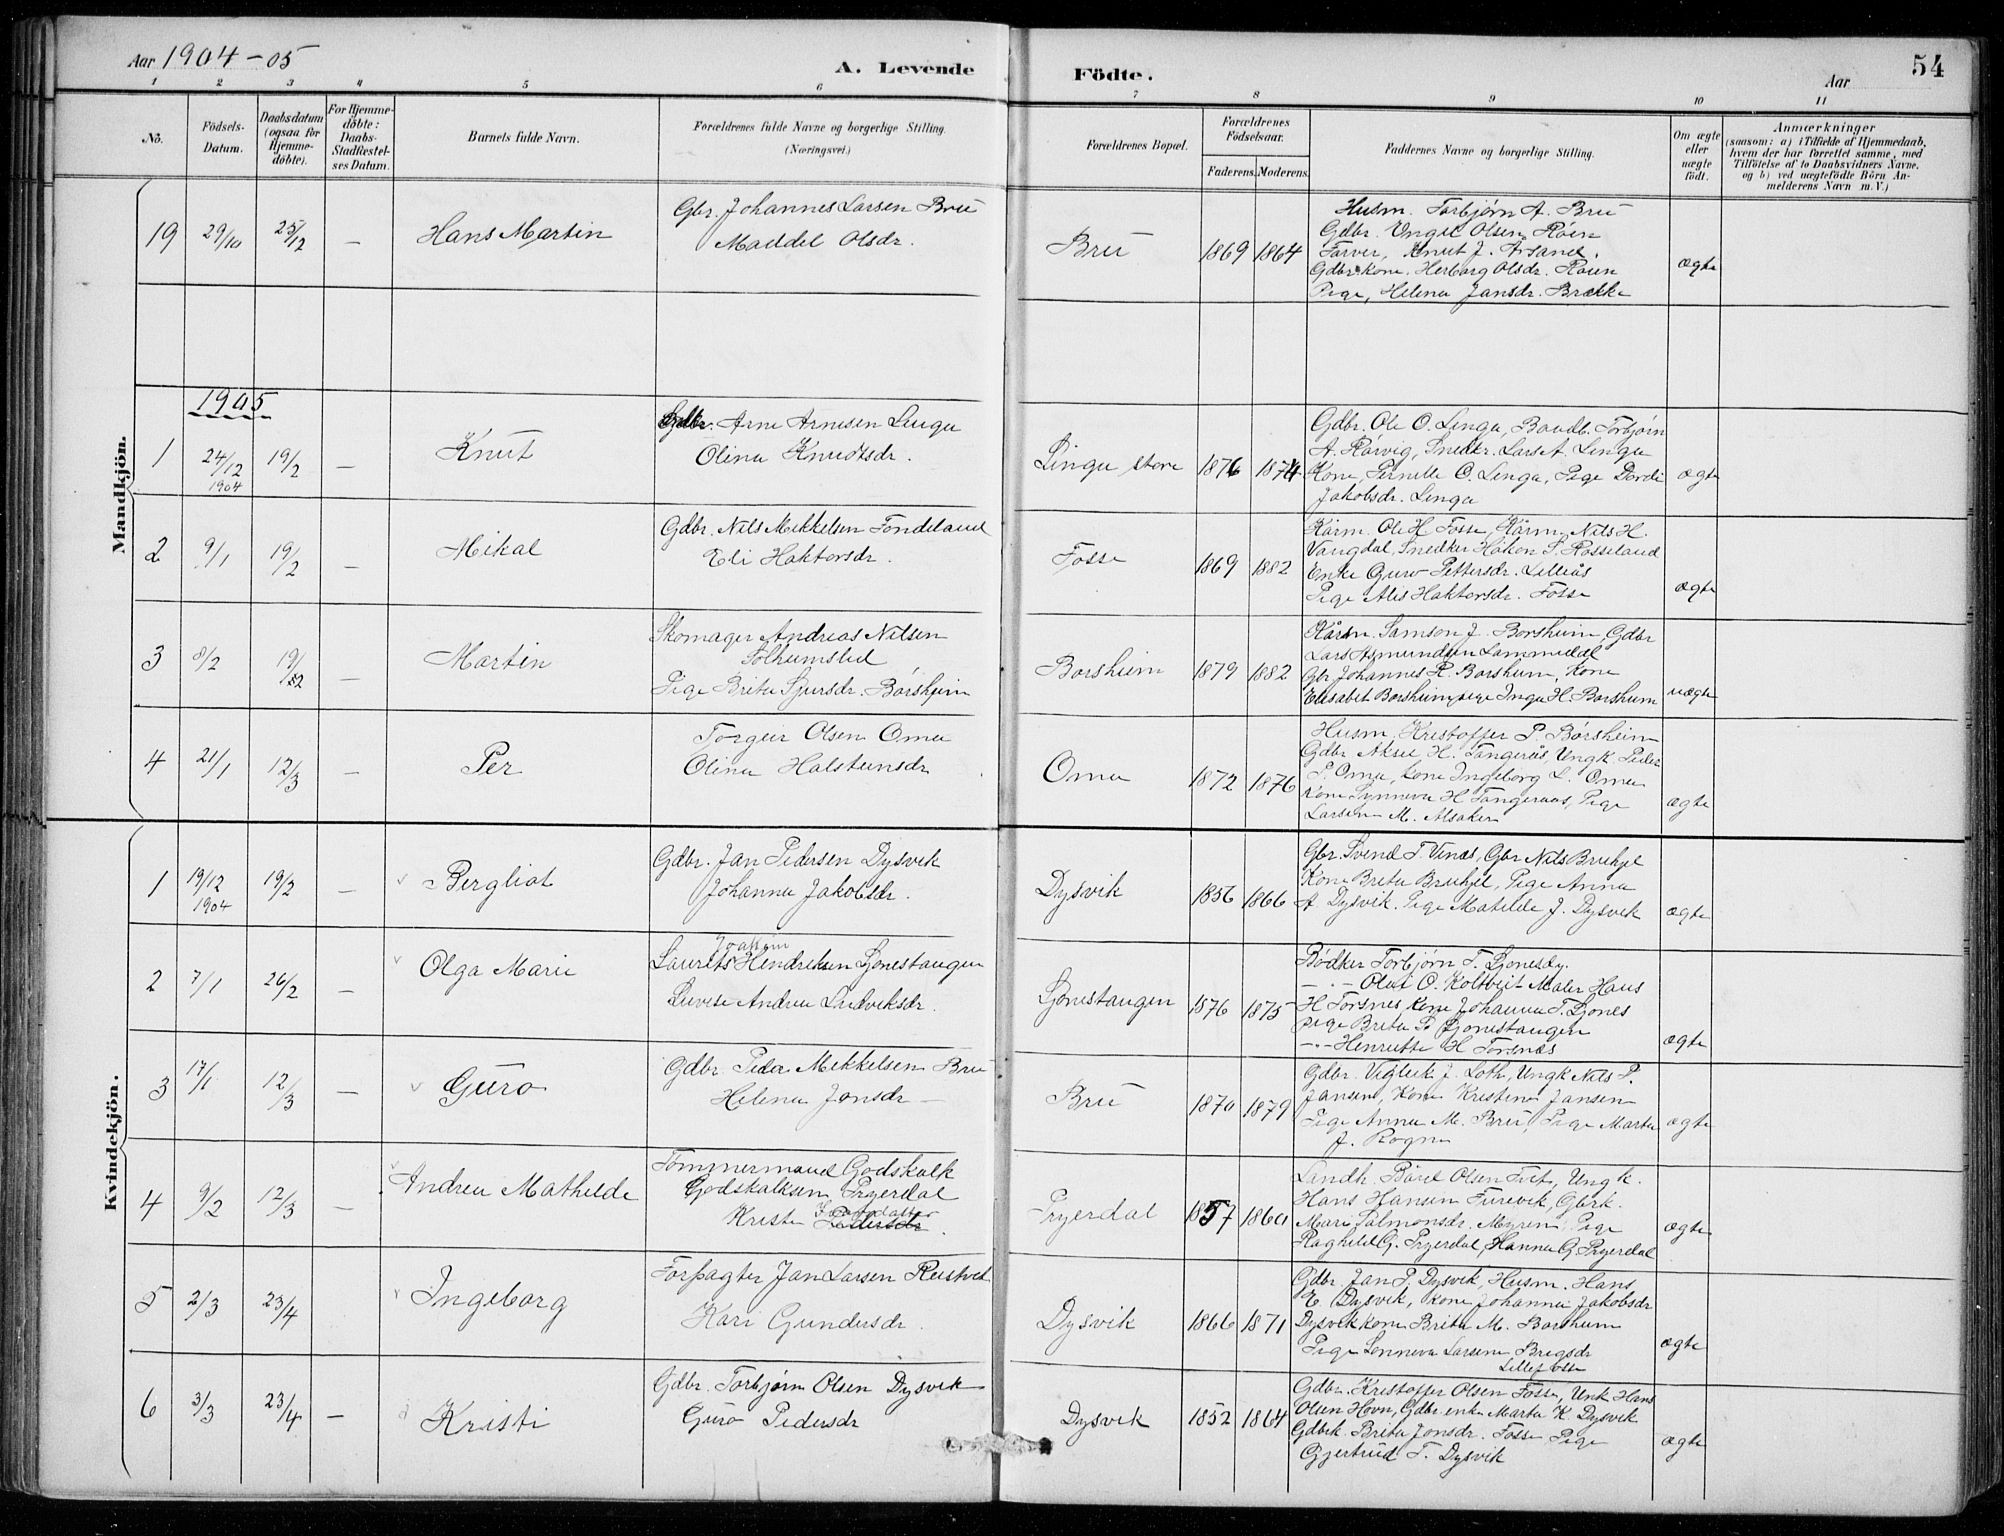 Aar 1904-05
A. Levende
Födte.
Aar
54
1 2 3 4 5 6 7 8 9 10 11
No.
Födsels-
Datum.
Daabsdatum
(ogsaa for
Hjemme-
döbte).
For Hjemme-
döbte:
Daabs-
Stadfæstel-
ses Datum.
Barnets fulde Navn.
Forældrenes fulde Navne og borgerlige Stilling.
(Næringsvei.)
Forældrenes Bopæl.
Forældrenes
Födselsaar.
Faderens. Moderens.
Faddernes Navne og borgerlige Stilling.
Om ægte
eller
uægte
födt.
Anmærkninger
(saasom: a) i Tilfælde af Hjemmedaab,
hvem der har forrettet samme, med
Tilföielse af to Daabsvidners Navne,
og b) ved uægtefödte Börn An-
melderens Navn m. V.)
Mandkjön.
19 29/10 25/12 — Hans Martin
Gbr. Johannes Larsen Bru
Maddel Olsdr.
Bru 1869 1864
Husm. Torbjørn A. Bru
Gdbr. Unge Olsen Røen
Farver, Knut J. Arsand.
Gdbrkone. Herborg Olsdr. Røen
Pige, Helena Jansdr. Brække
ægte
1905
1 24/12 1904 19/2 — Knut
Gdbr. Arne Arnesen Linga
Olina Knudtsdr.
Linga store 1876 1874
Gdbr. Ole O. Linga, Baadb. Torbjørn
A. Rørvig, Snedkr. Lars A. Linga
Kone, Pernille O. Linga, Pige Dordi
Jakobsdr. Linga
ægte
2 9/1 19/2 — Mikal
Gdbr. Nils Mikkelsen Tondeland
Eli Haktorsdr.
Fosse 1869 1882
Kårm. Ole H. Fosse, Kårm. Nils H.
Vangdal, Snedker Håkon S. Rosseland
Enke Guro Pettersdr. Lilleås
Pige Alis Haktorsdr. Fosse
ægte
3 8/2 19/2 — Martin
Skomager Andreas Nilsen
Solheimslid
Pige Brita Sjursdr. Børsheim
Borsheim 1879 1882
Kårm. Samson J. Borsheim, Gdbr
Lars Asmundsen Lammedal
Gbr Johannes R. Borsheim, Kone
Elisabet Borsheim, pige Inga H. Borsheim
uægte
4 21/1 12/3 — Per
Torgeir Olsen Oma
Olina Halstensdr
Oma 1872 1876
Husm. Kristoffer P. Børsheim
Gdbr Aksel H. Tangerås, Ungk. Peder
P. Oma, Kone Ingeborg L. Oma
Kone Synneva H Tangeraas, Pige
Larsine M. Alsaker
ægte
Kvindekjön.
1 19/12 1904 19/2 — Bergliot
Gdbr. Jan Pedersen Dysvik
Johanna Jakobsdr.
Dysvik 1856 1866
Gbr. Svend T. Vines, Gbr Nils Bruhjel
Kone Brita Bruhjel, Pige Anna
A Dysvik. Pige Matilde J. Dysvik
ægte
2 7/1 26/2 — Olga Marie
Joakim
Laurits Hendriksen Ljonestangen
Lovise Andrea Ludviksdr.
Ljonestangen 1876 1875
Bødker Torbjørn T. Ljonesøy
— " — Olai O. Koltveit Maler Hans
H Torsnes Kone Johanna T. Ljones
pige Brita P Ljonestangen
— " — Henrette H Torsnæs
ægte
3 17/1 12/3 — Guro
Gdbr. Peder Mikkelsen Bru
Helena Jonsdr —
Bru 1870 1879
Gdbr. Vigleik J. Loth, Ungk Nils P.
Jansen, Kone Kristina Jansen
Pige Anna M. Bru, Pige Marta
J. Rogne
ægte
4 9/2 12/3 — Andrea Mathilde
Tømmermand Godskalk
Godskalksen Fryerdal
Kristi
Fryerdal 1857 1860
Landh. Bård Olsen Tvet, Ungk.
Hans Hansen Furevik, Gbrk.
Mari Salmonsdr. Myren, Pige
Raghild G. Fryerdal, Hanna G. Fryerdal
ægte
5 2/3 23/4 Ingeborg
Forpagter Jan Larsen Reistved
Kari Gundersdr.
Dysvik 1866 1871
Gdbr. Jan P. Dysvik, Husm. Hans
E. Dysvik, Kone Johanna Jakobsdr
Dysvik kone Brita M. Borsheim
Pige Sønneva Larsine Brigsdr
Lillefosse
ægte
6 3/3 23/4 — Kristi
Gdbr. Torbjørn Olsen Dysvik
Guro Pedersdr
Dysvik 1852 1864
Gdbr. Kristoffer Olsen Fosse, Unk Hans
Olsen Hovn, Gdbr enk. Marta K. Dysvik
Gdbrk. Brita Jonsdr. Fosse Pige
Gjertrud T. Dysvik
ægte